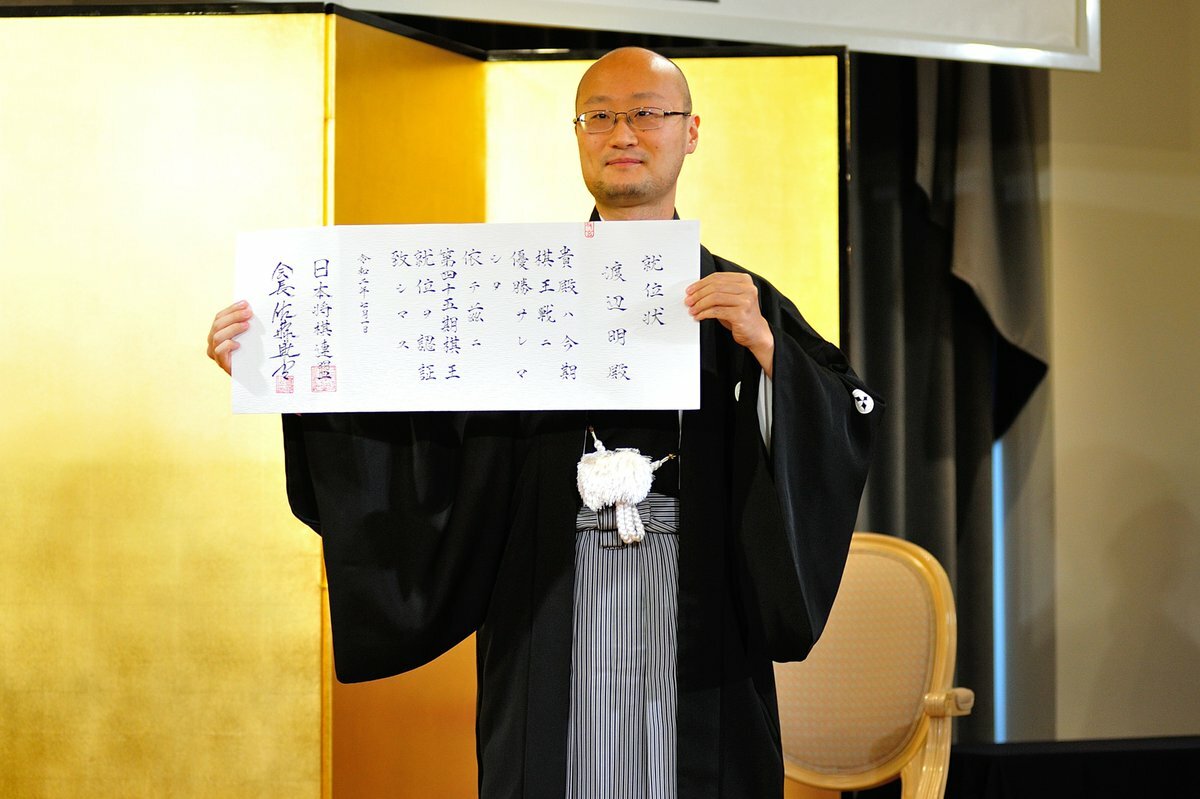 就位状
渡辺明殿
貴殿ハ今期
棋王戦ニ
優勝サレマ
シタ
依テ茲ニ
第四十五期棋王
就位ヲ認証
致シマス
令和二年七月一日
日本将棋連盟
会長佐藤康光